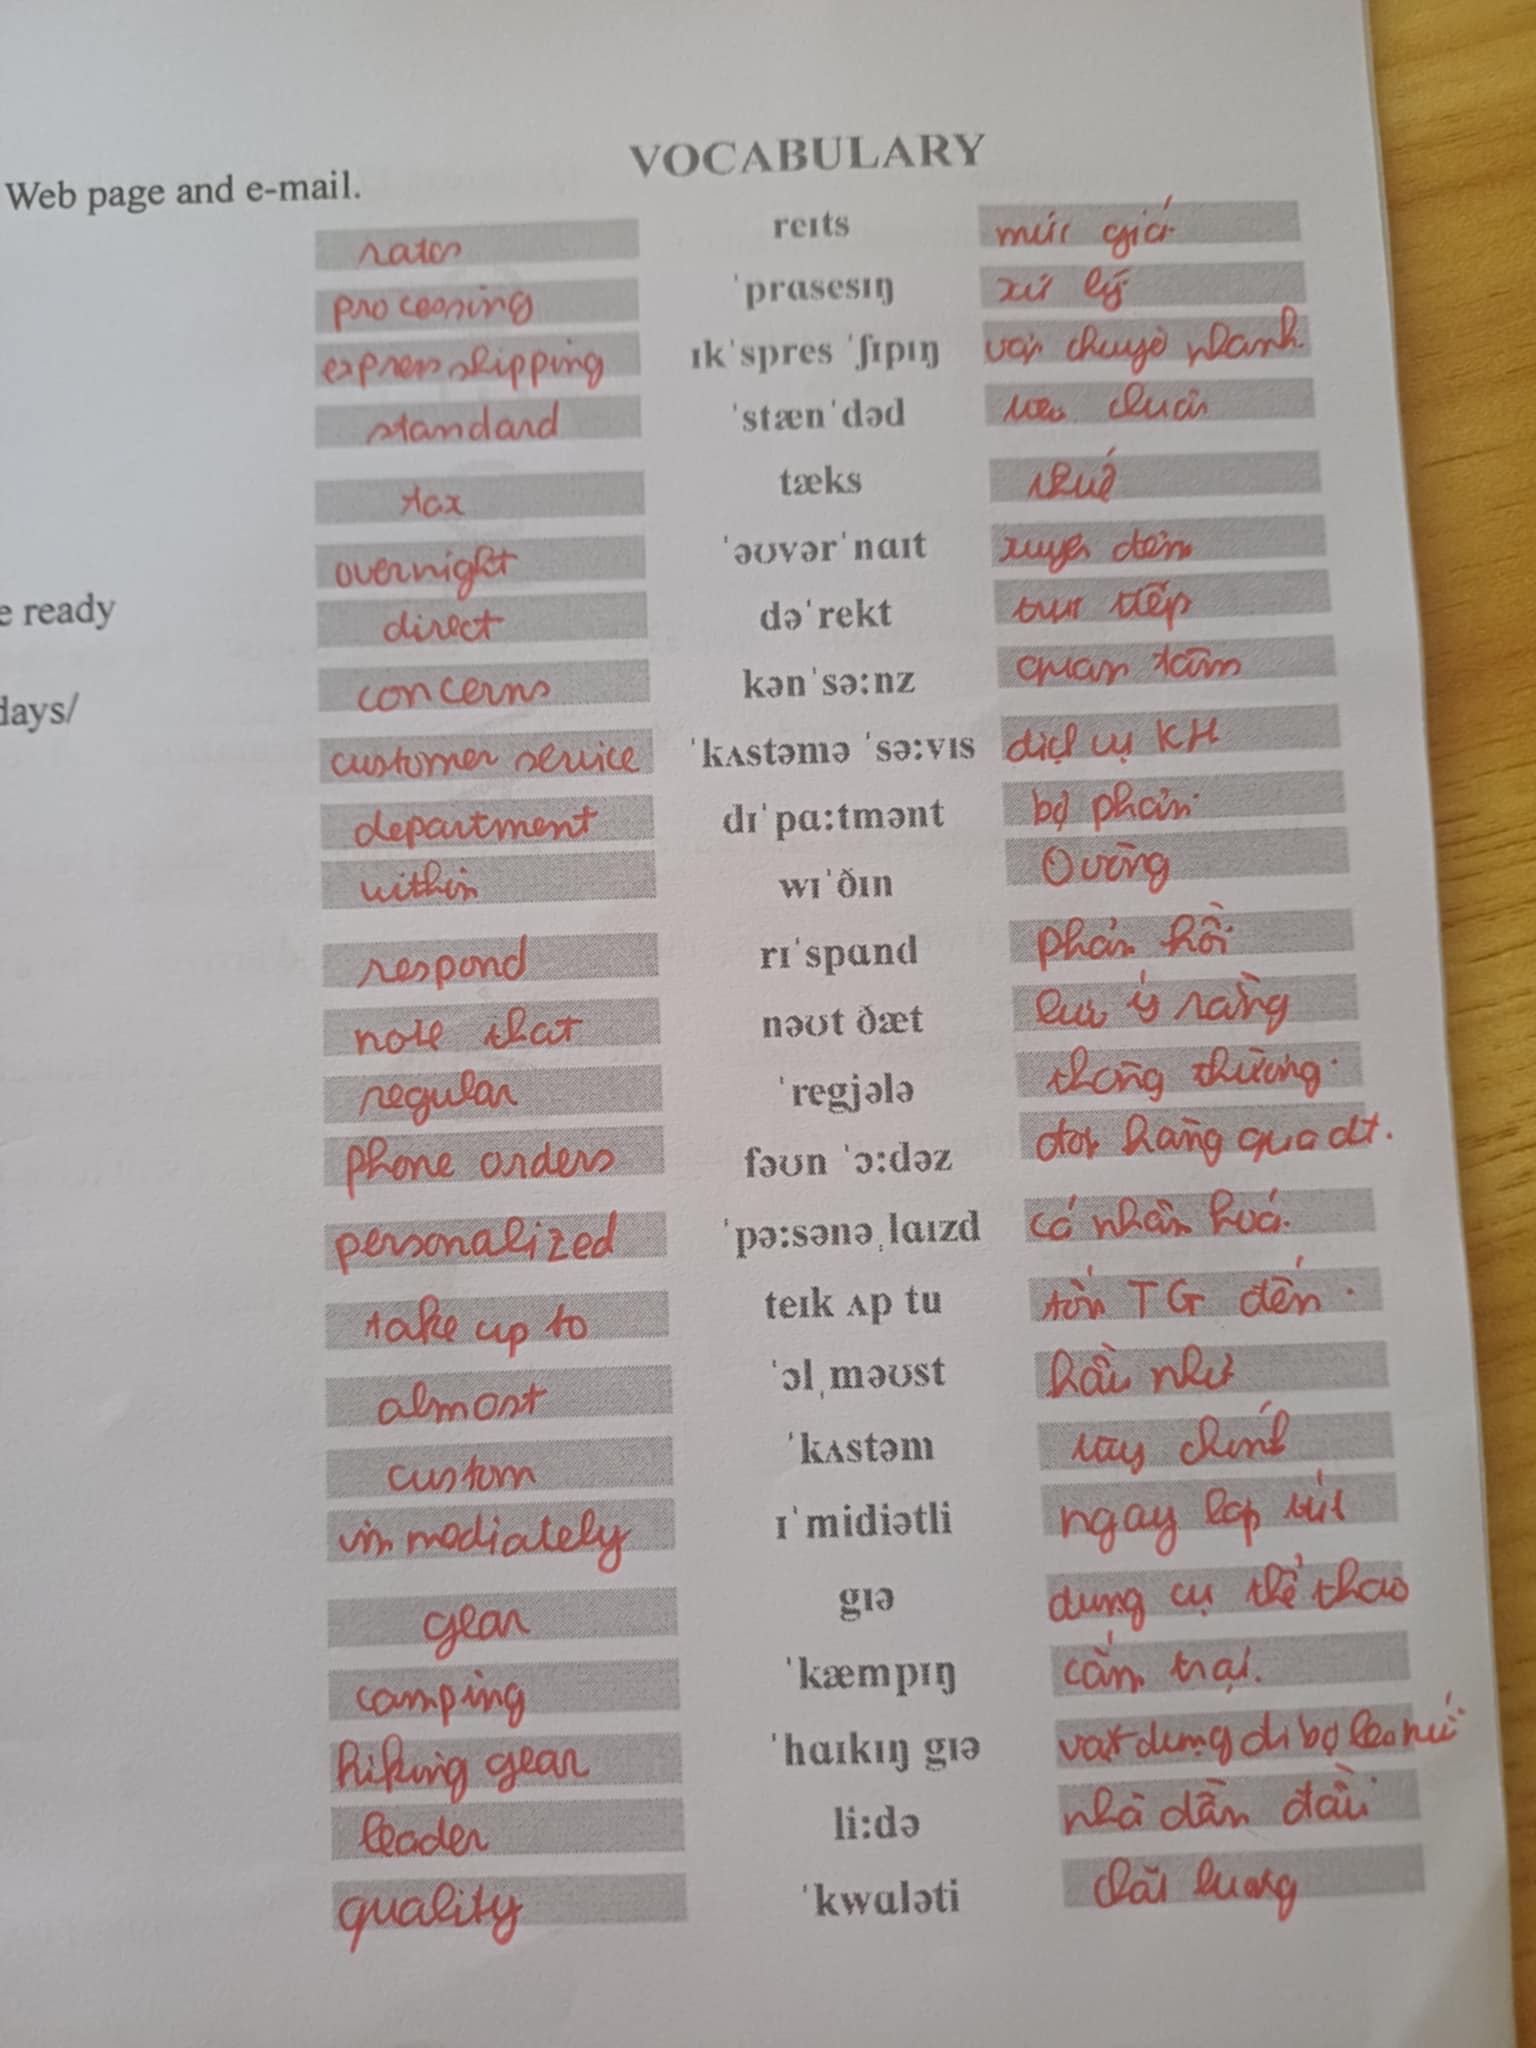 VOCABULARY
Web page and e-mail.
rates reɪts mức giá
processing ˈprɑsesɪŋ xử lý
express shipping ɪkˈspres ˈʃɪpɪŋ vận chuyển nhanh.
standard ˈstænˈdəd tiêu chuẩn
tax tæks thuế
overnight ˈəʊvərˈnɑɪt xuyên đêm
e ready
direct dəˈrekt trực tiếp
concerns kənˈsə:nz quan tâm
days/
customer service ˈkʌstəmə ˈsə:vɪs dịch vụ KH
department dɪˈpɑ:tmənt bộ phận
within wɪˈðɪn
respond rɪˈspɑnd phản hồi
note that nəʊt ðæt lưu ý rằng
regular ˈregjələ thông thường.
phone orders fəʊn ˈɔ:dəz đặt hàng qua dt.
personalized ˈpə:sənəˌlɑɪzd cá nhân hoá.
take up to teɪk ʌp tu tốn TG đến
almost ˈɔlˌməʊst hầu như
custom ˈkʌstəm tùy chỉnh
immediately ɪˈmidiətli ngay lập tức
gear gɪə dụng cụ thể thao
camping ˈkæmpɪŋ cắm trại.
hiking gear ˈhɑɪkɪŋ gɪə vật dụng đi bộ leo núi
leader li:də nhà dẫn đầu
quality ˈkwɑləti chất lượng